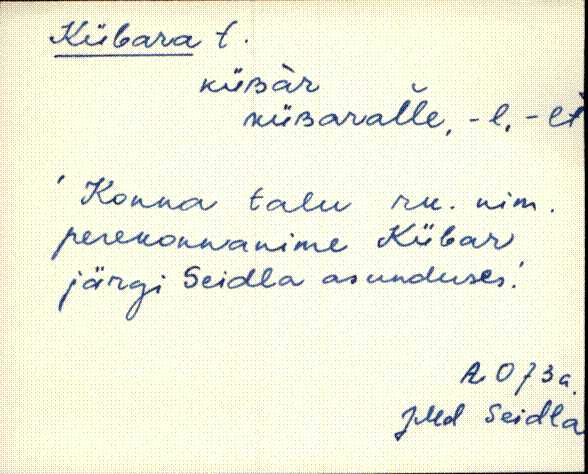 Kübara t.
küʙàr
küʙaralle, -l, -lt
'Konna talu rv. nim.
perekonnanime Kübar
järgi Seidla asunduses.'
JMd Seidla